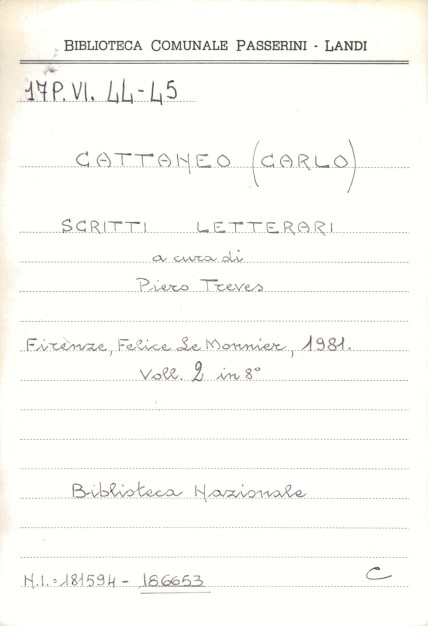 BIBLIOTECA COMUNALE PASSERINI - LANDI
17P. VI. 44-45
CATTANEO (CARLO)
SCRITTI LETTERARI
a cura di
Piero Treves
Firenze, Felice Le Monnier, 1981.
Voll. 2 in 8°
Biblioteca Nazionale
N.I. = 181594 - 186653
C